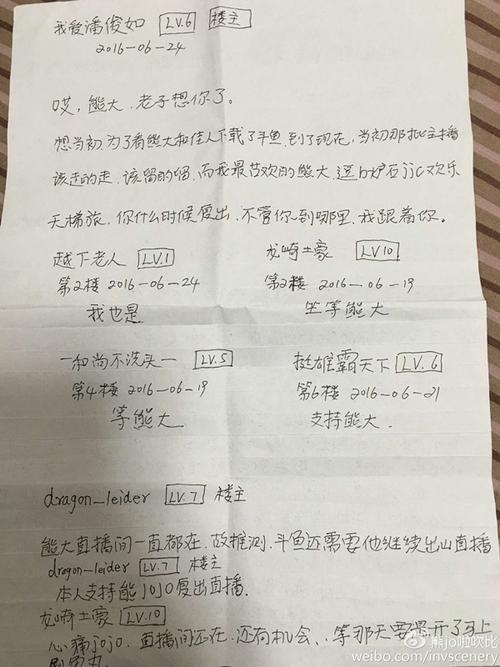 我爱潘俊如 LV.6 楼主
2016-06-24
哎，熊大，老子想你了。
想当初，为了看熊大和佳人下载了斗鱼，到了现在，当初那批主播
该走的走，该留的留，而我最喜欢的熊大，逗b炉石jjc欢乐
天梯旅，你什么时候复出，不管你到哪里，我跟着你。
越下老人 LV.1
第2楼 2016-06-24
我也是
龙崎土豪 LV10
第2楼 2016-06-19
坐等熊大
一和尚不洗头一 LV.5
第4楼 2016-06-19
等熊大
挺雄霸天下 LV.6
第6楼 2016-06-21
支持熊大.
dragon_leider LV.7 楼主
熊大直播间一直都在，故推测，斗鱼还需要他继续出山直播
dragon_leider LV.7 楼主
本人支持熊JOJO复出直播.
龙崎土豪 LV.10
心疼jojo，直播间还在，还有机会、、等那天要是开了马上
@熊jo啪啦比
weibo.com/invscenery